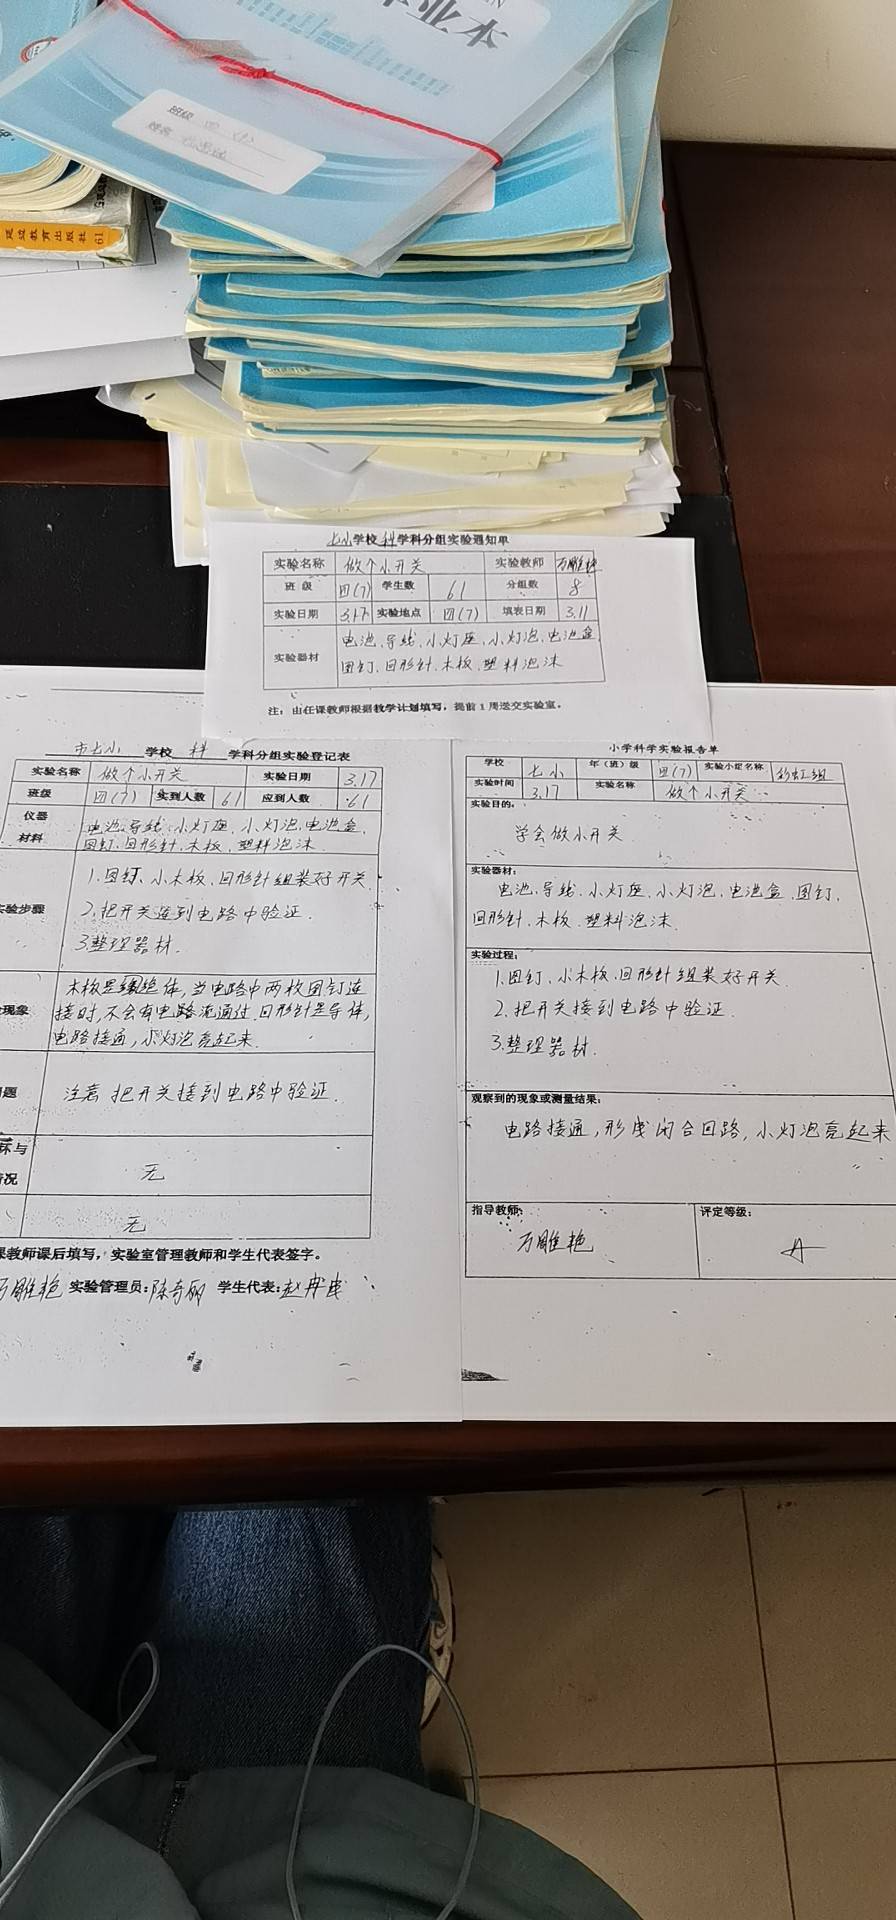 本业
班级 四
姓名
延边教育出版社 61
七小学校科学科分组实验通知单
实验名称 做个小开关 实验教师 万雕艳
班级 四(7) 学生数 61 分组数 8
实验日期 3.17 实验地点 四(7) 填表日期 3.11
实验器材 电池、导线、小灯座、小灯泡、电池盒、
图钉、回形针、木板、塑料泡沫
注：由任课教师根据教学计划填写，提前1周送交实验室。
市七小 学校 科 学科分组实验登记表
实验名称 做个小开关 实验日期 3.17
班级 四(7) 实到人数 61 应到人数 61
仪器
材料
电池、导线、小灯座、小灯泡、电池盒、
图钉、回形针、木板、塑料泡沫
实验步骤
1.图钉、小木板、回形针组装好开关
2.把开关连到电路中验证.
3.整理器材.
现象
木板是绝体,当电路中两枚图钉连
接时,不会有电路流通过.回形针是导体,
电路接通,小灯泡亮起来.
题
注意 把开关接到电路中验证.
坏与
情况
无
无
课教师课后填写，实验室管理教师和学生代表签字。
万雕艳 实验管理员：陈奇丽 学生代表：赵
小学科学实验报告单
学校 七小 年（班）级 四(7) 实验小组名称 彩虹组
实验时间 3.17 实验名称 做个小开关
实验目的：
学会做小开关
实验器材：
电池、导线、小灯座、小灯泡、电池盒、图钉、
回形针、木板、塑料泡沫.
实验过程：
1.图钉、小木板、回形针组装好开关
2.把开关接到电路中验证.
3.整理器材.
观察到的现象或测量结果：
电路接通,形成闭合回路,小灯泡亮起来
指导教师：
万雕艳
评定等级：
A